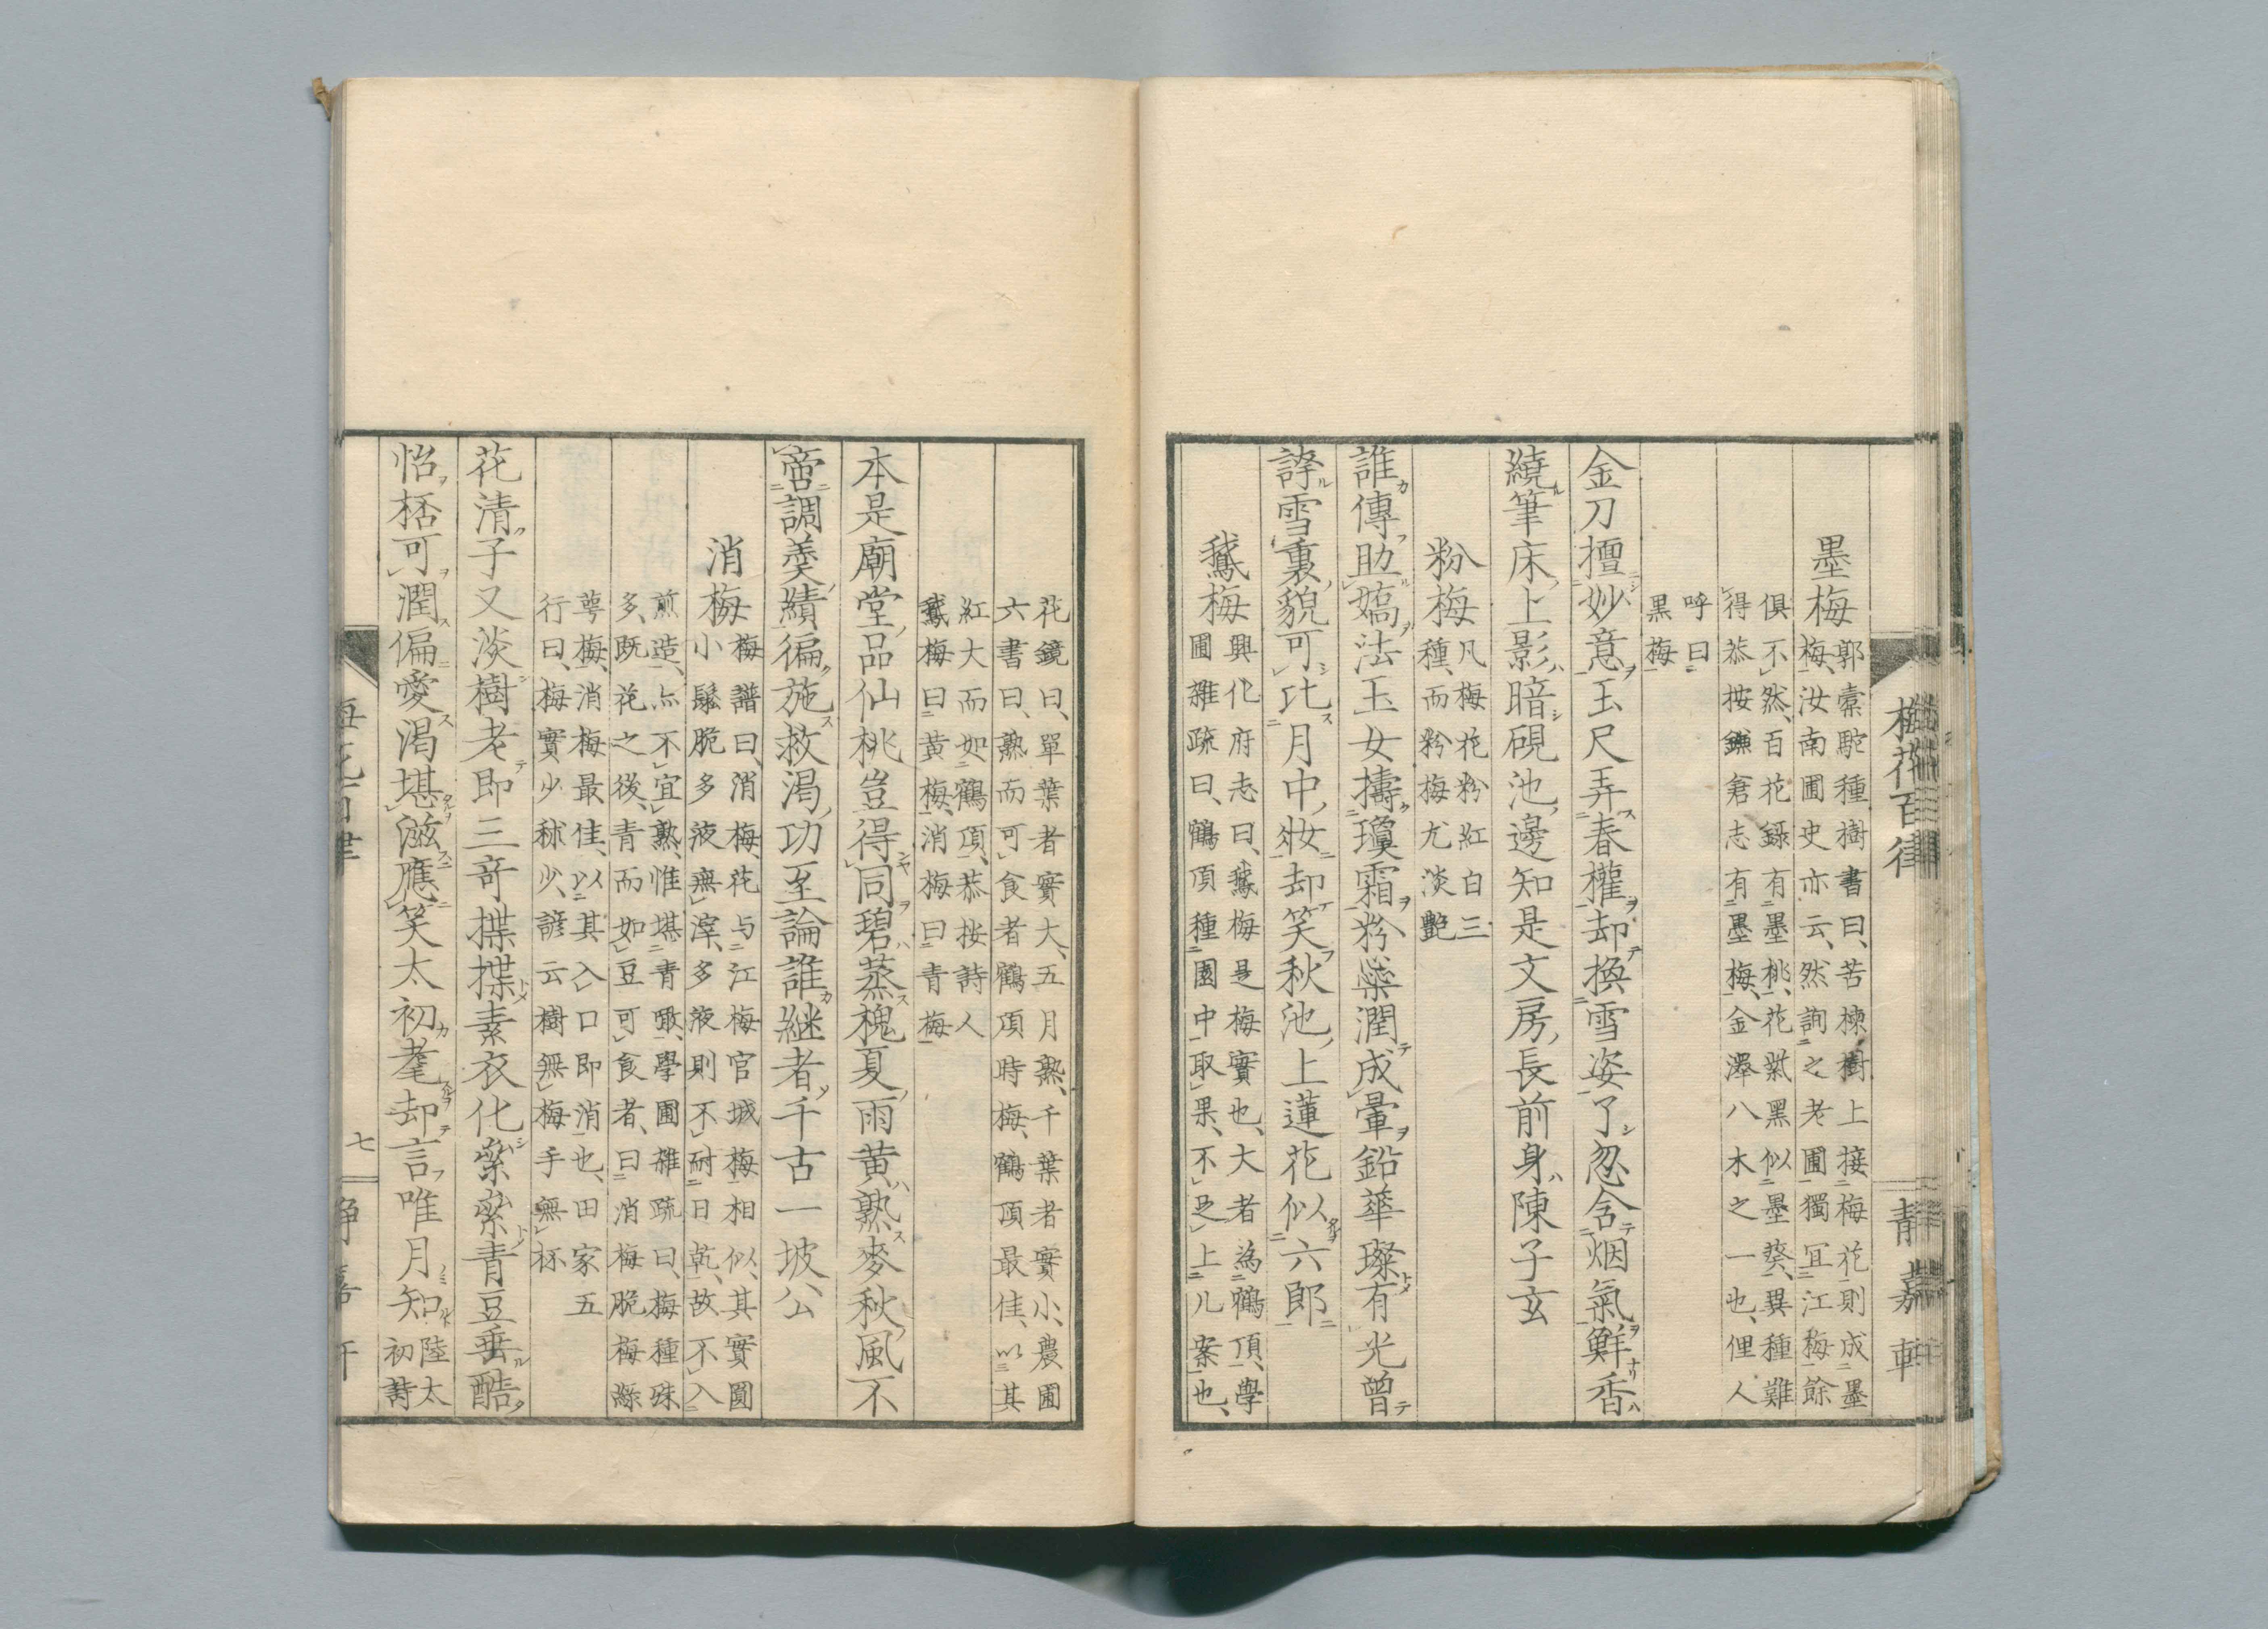 墨梅
郭橐駝種樹書曰、苦楝樹上接梅花則成墨
梅、汝南圃史亦云、然詢之老圃獨冝江梅餘
俱不然、百花錄有墨桃、花紫黑似墨葵、異種難
得恭按鎌倉志有墨梅、金澤八木之一也、俚人
呼曰
黒梅
金刀擅妙意玉尺弄春權却換雪姿了忽含烟氣鮮香
繞筆床上影暗硯池邊知是文房長前身陳子玄
粉梅
凡梅花粉紅白三
種、而粉梅尤淡艷
誰傳助嬌法玉女擣瓊霜粉漿潤成暈鉛華璨有光曾
誇雪裏貌可比月中妝却笑秋池上蓮花似六郎
鵞梅
興化府志曰、鵞梅是梅實也、大者為鶴頂、學
圃雜疏曰、鶴頂種園中取果、不足上几案也、
花鏡曰、單葉者實大、五月熟、千葉者實小、農圃
六書曰、熟而可食者鶴頂時梅、鶴頂最佳、以其
紅大而如鶴頂、恭按詩人
鵞梅曰黄梅、消梅曰青梅
本是廟堂品仙桃豈得同碧蒸槐夏雨黄熟麥秋風不
啻調羮績徧施救渇功至論誰継者千古一坡公
消梅
梅譜曰、消梅、花与江梅官城梅相似、其實圓
小鬆脆多液無滓、多液則不耐日乾、故不入
煎造、亦不宜熟、惟堪青噉、學圃雜疏曰、梅種殊
多、既花之後、青而如豆可食者、曰消梅脆梅緑
萼梅、消梅最佳、以其入口即消也、田家五
行曰、梅實少秫少、諺云樹無梅手無杯
花清子又淡樹老即三竒揲揲素衣化纍纍青豆垂酷
怡栝可潤偏愛渇堪滋應笑太初耄却言唯月知
陸太
初詩
梅花百律
七
靜嘉軒
梅花百律
青嘉軒